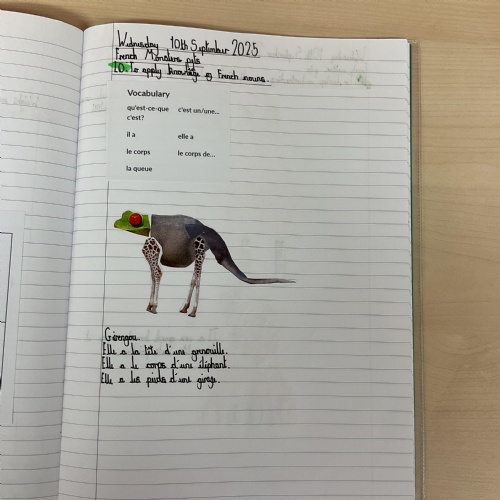 Wednesday 10th September 2025
French Monsters pets
LO: To apply knowledge of French nouns.
Vocabulary
qu'est-ce-que c'est un/une...
c'est?
il a elle a
le corps le corps de...
la queue
Elle a la tête d'une grenouille.
Elle a le corps d'une éléphant.
Elle a les pieds d'une girafe.